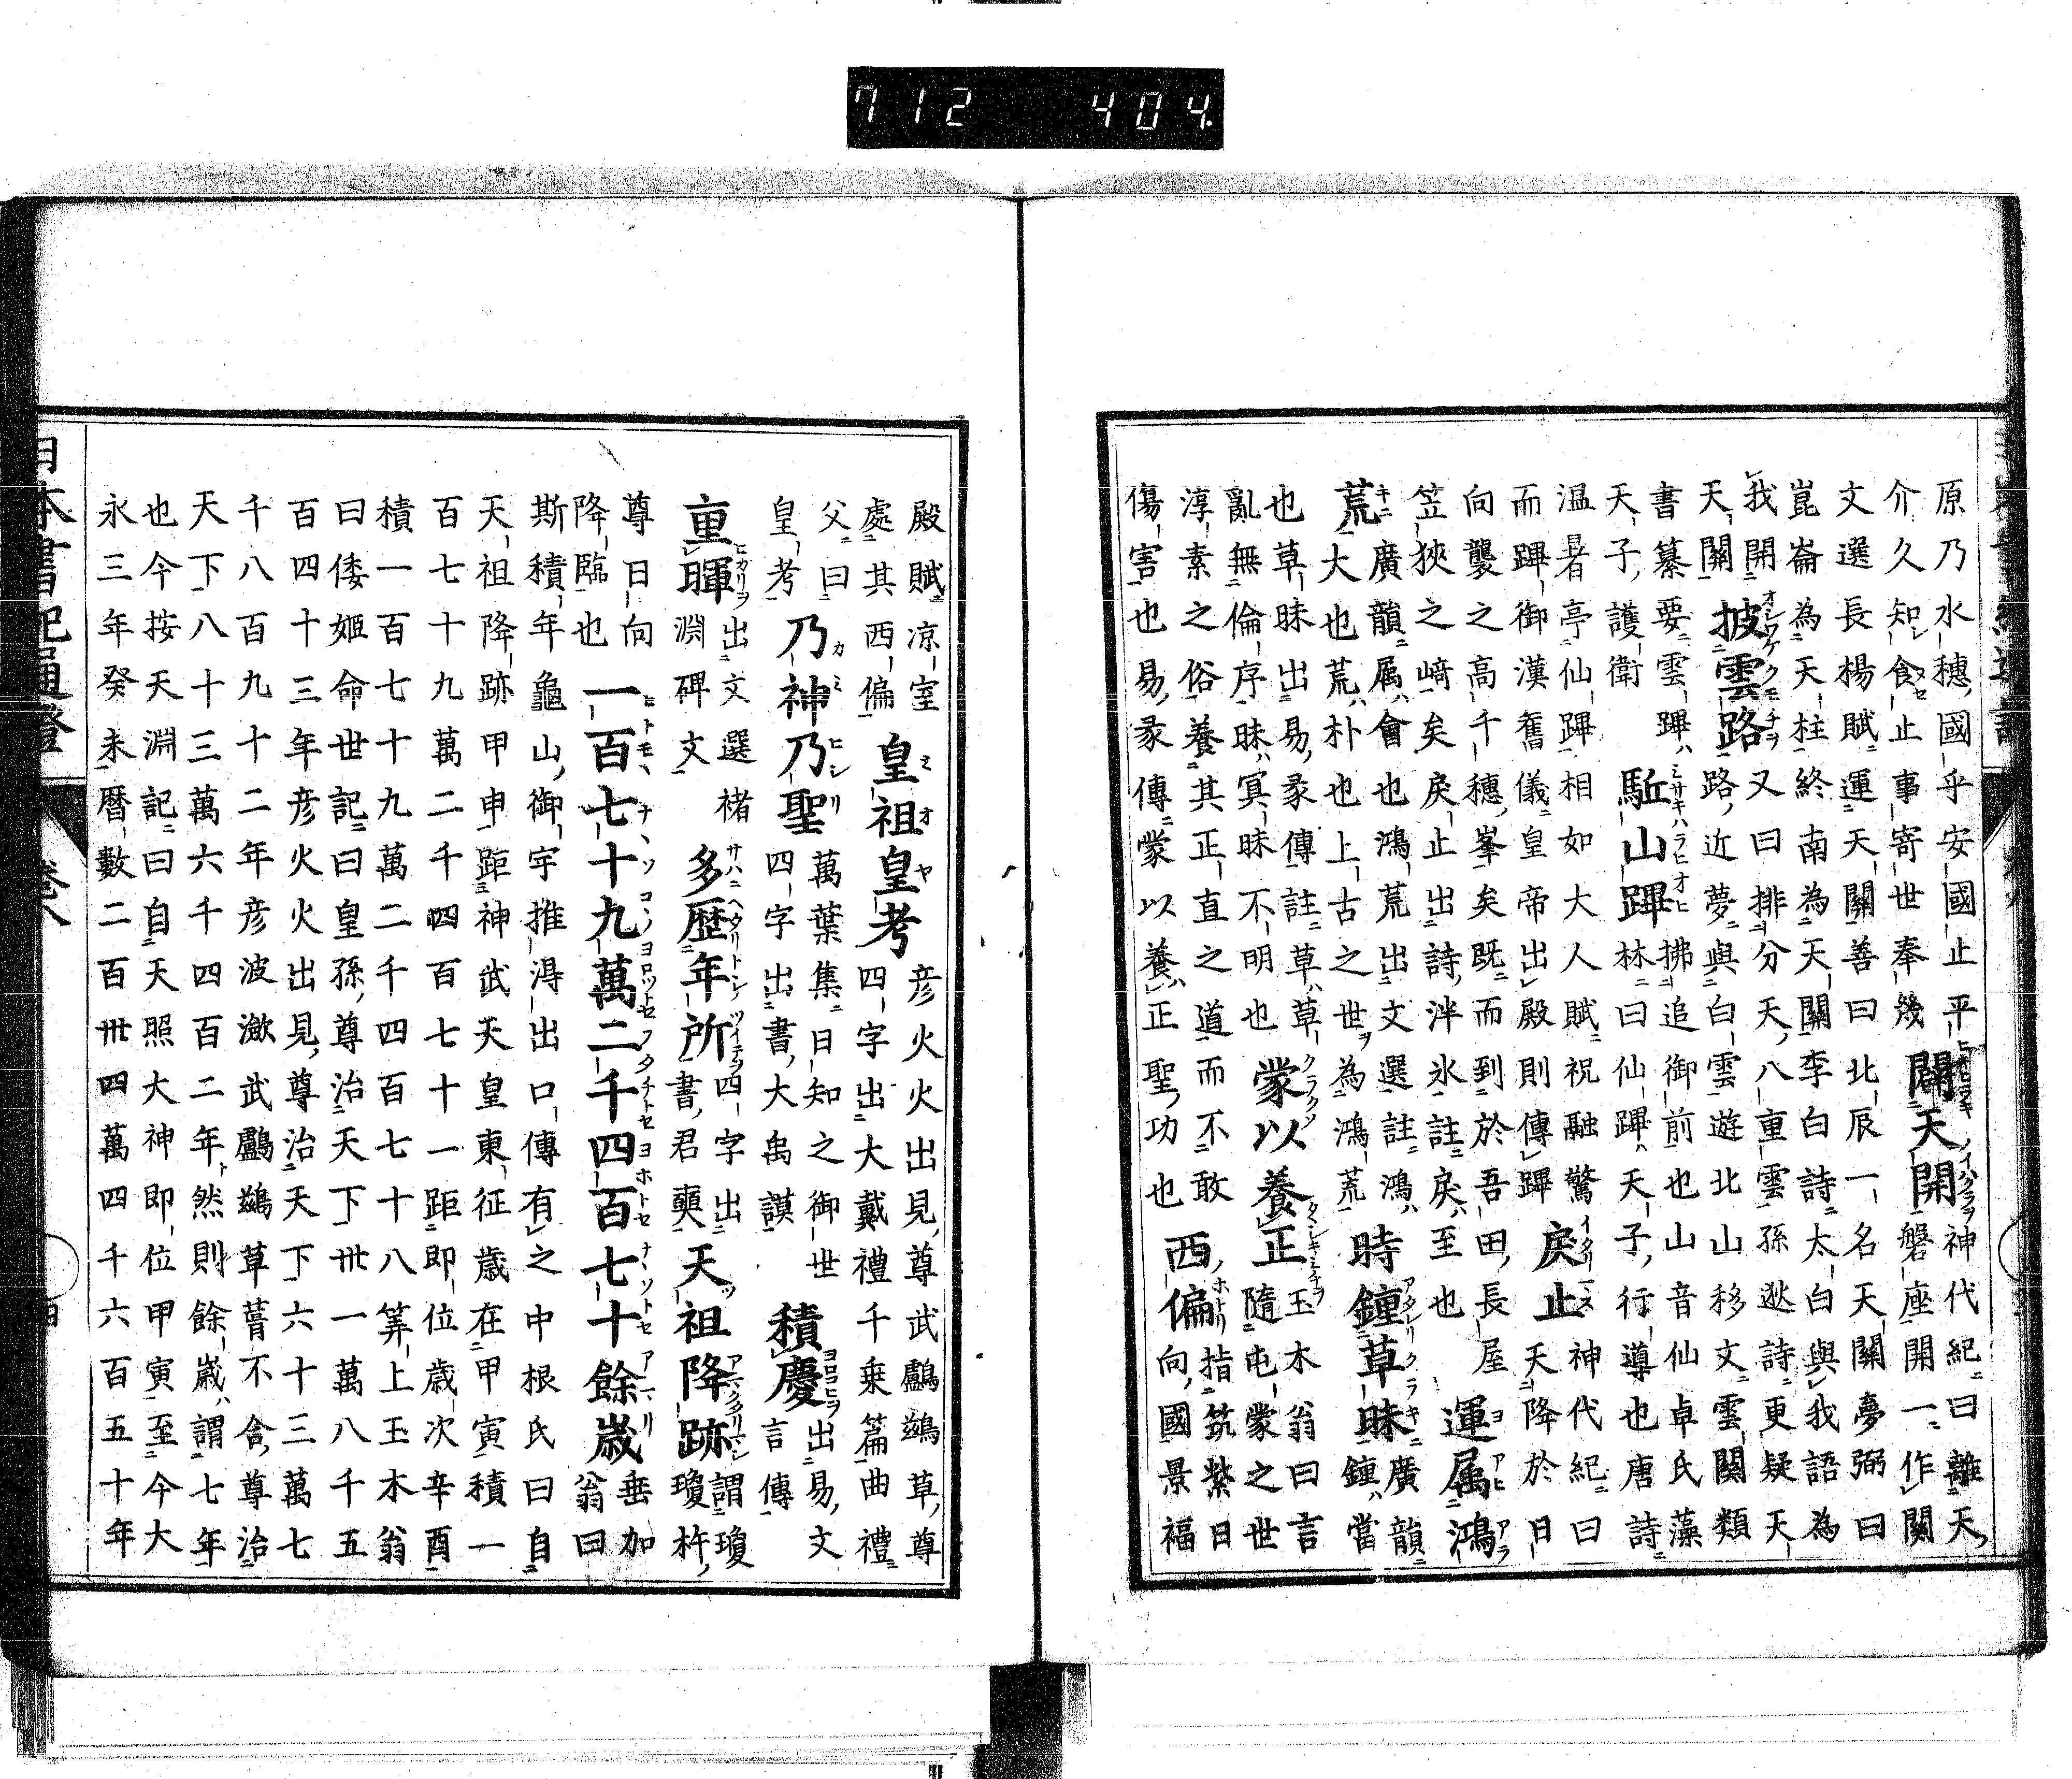 712 404
原乃水穂國乎安國止平
介久知食止事寄世奉幾
闢天開
神代紀曰離天
磐座開一作關
文選長楊賦運天關善曰北辰一名天關夢弼曰
崑崙為天柱終南為天關李白詩太白與我語為
我開天關
披雲路
又曰排分天八重雲孫逖詩更疑天
路近夢與白雲遊北山移文雲關類
書纂要雲蹕
天子護衛
駈山蹕
林曰仙蹕天子行導也唐詩
拂追御前也山音仙卓氏藻
温暑亭仙蹕相如大人賦祝融驚
而蹕御漢舊儀皇帝出殿則傳蹕
戾止
神代紀曰
天降於日
向襲之高千穗峯矣既而到於吾田長屋
笠狹之﨑矣戾止出詩泮水註戾至也
運屬鴻
荒
廣韻屬會也鴻荒出文選註鴻
大也荒朴也上古之世為鴻荒
時鍾草昧
廣韻
鍾當
也草昧出易彖傳註草草
亂無倫序昧冥昧不明也
蒙以養正
玉木翁曰言
隨屯蒙之世
淳素之俗養其正直之道而不敢
傷害也易彖傳蒙以養正聖功也
西偏
指筑紫日
向國景福
殿賦涼室
處其西偏
皇祖皇考
彦火火出見尊武鸕鷀草尊
四字出大戴禮千乗篇曲禮
父曰
皇考
乃神乃聖
萬葉集日知之御世
四字出書大禹謨
積慶
出易文
言傳
重暉
出文選褚
淵碑文
多歷年所
四字出
書君奭
天祖降跡
謂瓊
瓊杵
尊日向
降臨也
一百七十九萬二千四百七十餘歲
垂加
翁曰
斯積年龜山御宇推淂出口傳有之中根氏曰自
天祖降跡甲申距神武天皇東征歲在甲寅積一
百七十九萬二千四百七十一距即位歲次辛酉
積一百七十九萬二千四百七十八筭上玉木翁
曰倭姬命世記曰皇孫尊治天下卅一萬八千五
百四十三年彦火火出見尊治天下六十三萬七
千八百九十二年彦波瀲武鸕鷀草葺不合尊治
天下八十三萬六千四百二年然則餘歲謂七年
也今按天淵記曰自天照大神即位甲寅至今大
永三年癸未曆數二百卅四萬四千六百五十年
日本書紀通證
卷八
四